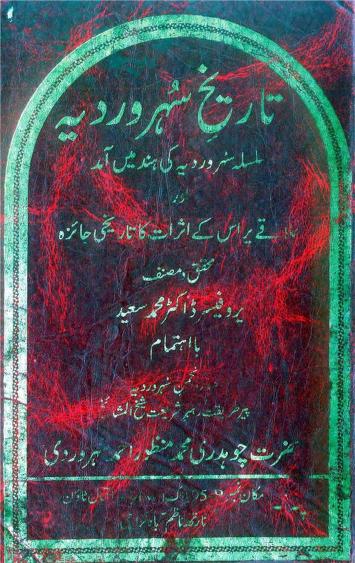 تاریخِ سُہروردیہ
سلسلہ سہروردیہ کی ہند میں آمد
اور
علاقے پر اس کے اثرات کا تاریخی جائزہ
محقق، مصنف
پروفیسر ڈاکٹر محمد سعید
بااہتمام
انجمن سہروردیہ
پیر طریقت رہبر شریعت شیخ المشائخ
حضرت چوہدری محمد منظور احمد سہروردی
مکان نمبر
نارتھ ناظم آباد کراچی